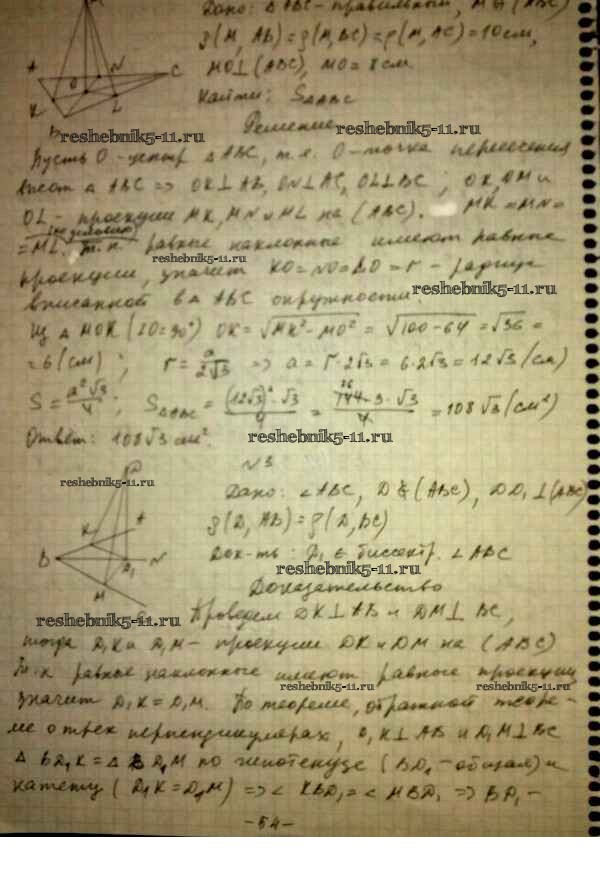 Дано: △ABC - правильный, M ∉ (ABC)
ρ(M, AB) = ρ(M, BC) = ρ(M, AC) = 10 см,
MO ⊥ (ABC), MO = 8 см.
Найти: S△ABC
Решение
reshebnik5-11.ru
reshebnik5-11.ru
Пусть O - центр △ABC, т.е. O - точка пересечения
высот △ABC => OK⊥AB, ON⊥AC, OL⊥BC; OK, OM и
OL - проекции MK, MN и ML на (ABC). MK = MN =
= ML (по условию) т.к. равные наклонные имеют равные
reshebnik5-11.ru
проекции, значит KO = NO = LO = r - радиус
вписанной в △ABC окружности
reshebnik5-11.ru
Из △MOK (∠O=90°) OK = √MK² - MO² = √100-64 = √36 =
= 6 (см); r = a/2√3 => a = r·2√3 = 6·2√3 = 12√3 (см)
S = a²√3/4; S△ABC = (12√3)²·√3/4 = 144·3·√3/4 = 108√3 (см²)
36
Ответ: 108√3 см².
reshebnik5-11.ru
N3
reshebnik5-11.ru
Дано: ∠ABC, D ∉ (ABC), DD₁ ⊥ (ABC)
ρ(D, AB) = ρ(D, BC)
Док-ть: D₁ ∈ биссектр. ∠ABC
reshebnik5-11.ru
Доказательство
reshebnik5-11.ru
Проведем DK⊥AB и DM⊥BC,
тогда D₁K и D₁M - проекции DK и DM на (ABC)
Т.к равные наклонные имеют равные проекции,
reshebnik5-11.ru
reshebnik5-11.ru
значит D₁K = D₁M. По теореме, обратной теоре-
ме о трех перпендикулярах, D₁K⊥AB и D₁M⊥BC
△BD₁K = △BD₁M по гипотенузе (BD₁ - общая) и
катету (D₁K = D₁M) => ∠KBD₁ = ∠MBD₁ => BD₁ -
- 54 -
A
N
C
O
K
L
B
D
A
K
B
D₁
N
M
C